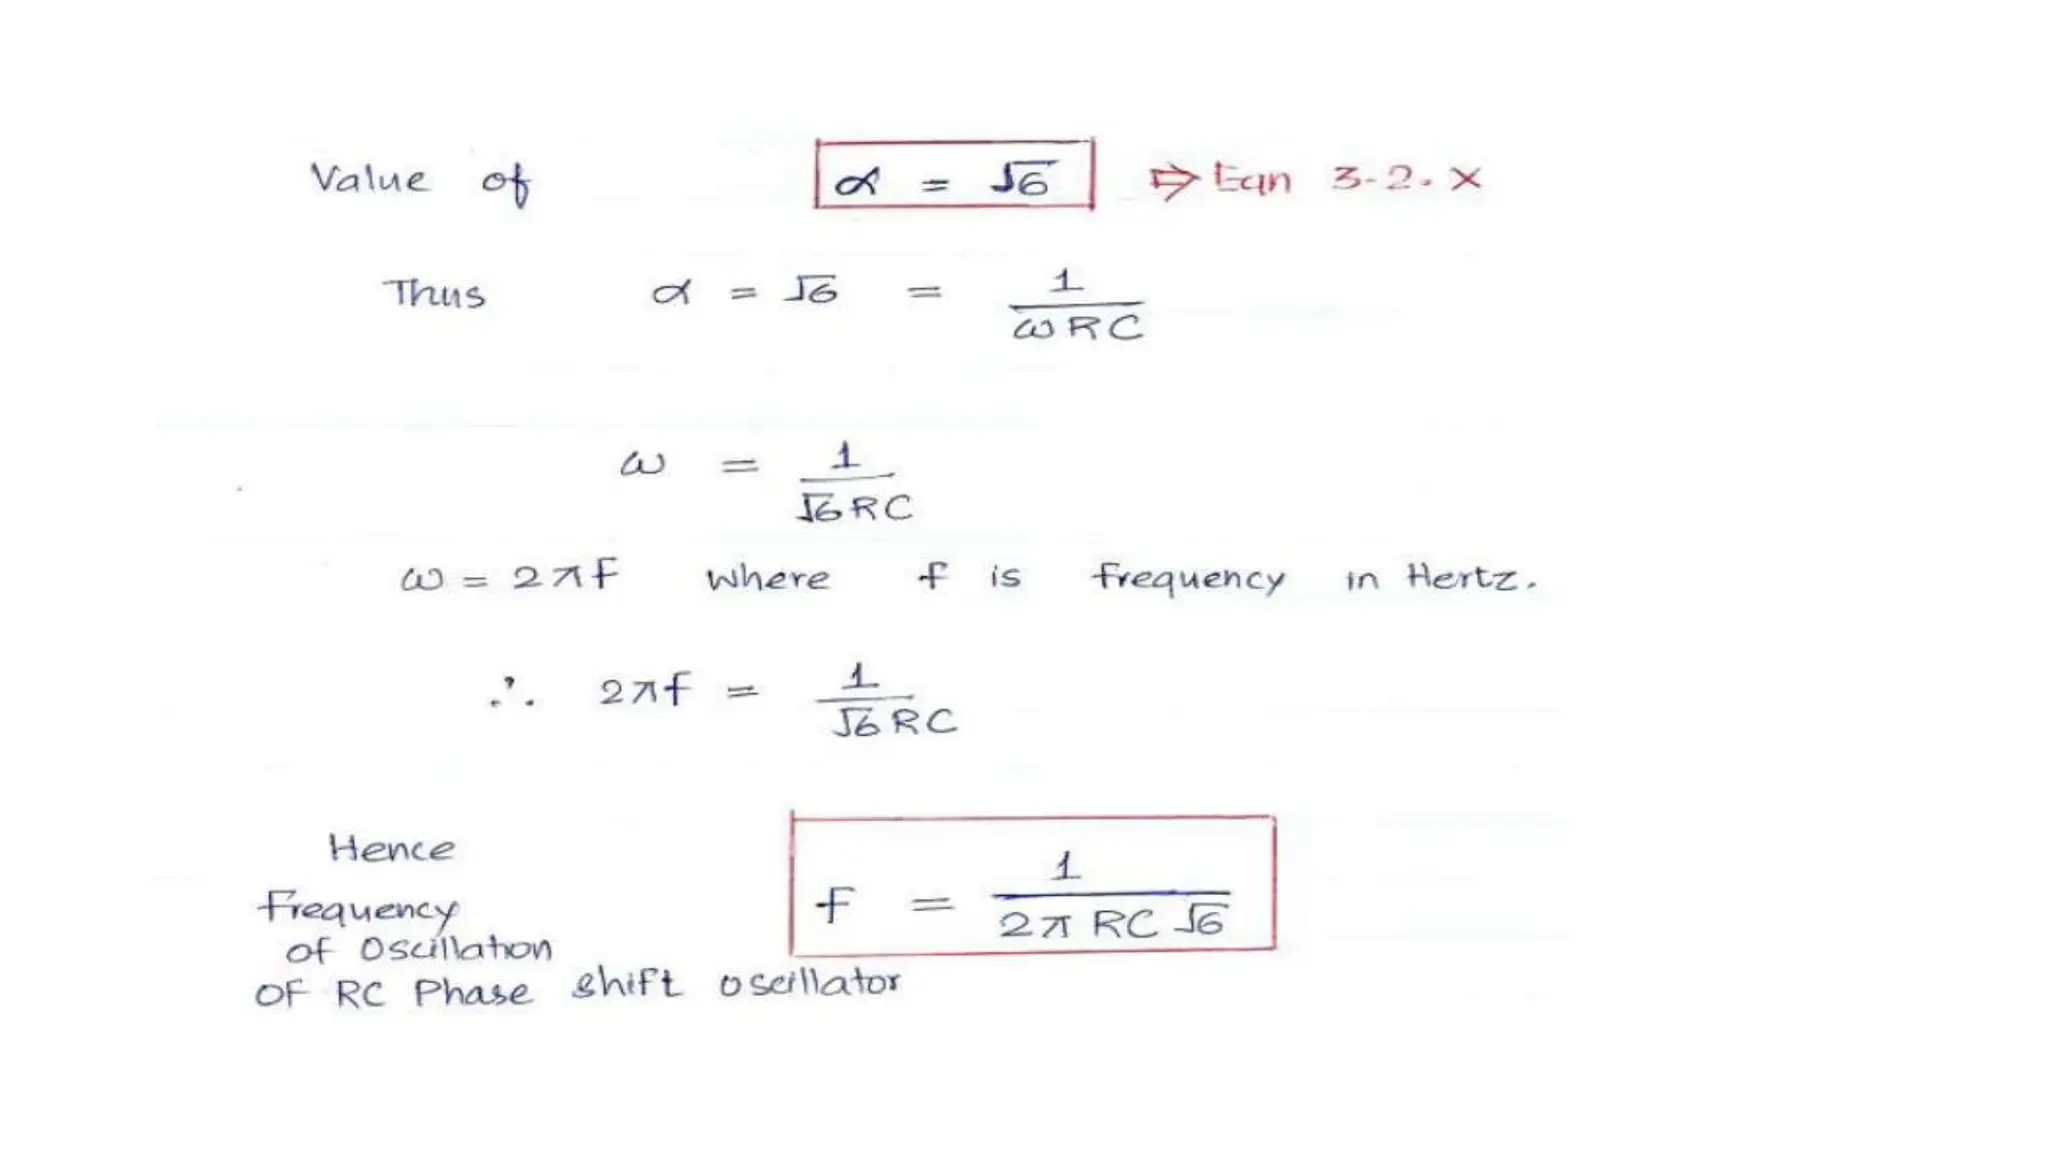 Value of α = √6 ⇒ Eqn 3-2. X
Thus α = √6 = 1/ωRC
ω = 1/√6RC
ω = 2πf where f is frequency in Hertz.
∴ 2πf = 1/√6RC
Hence
Frequency
of Oscillation
OF RC Phase shift oscillator
f = 1/2π RC √6